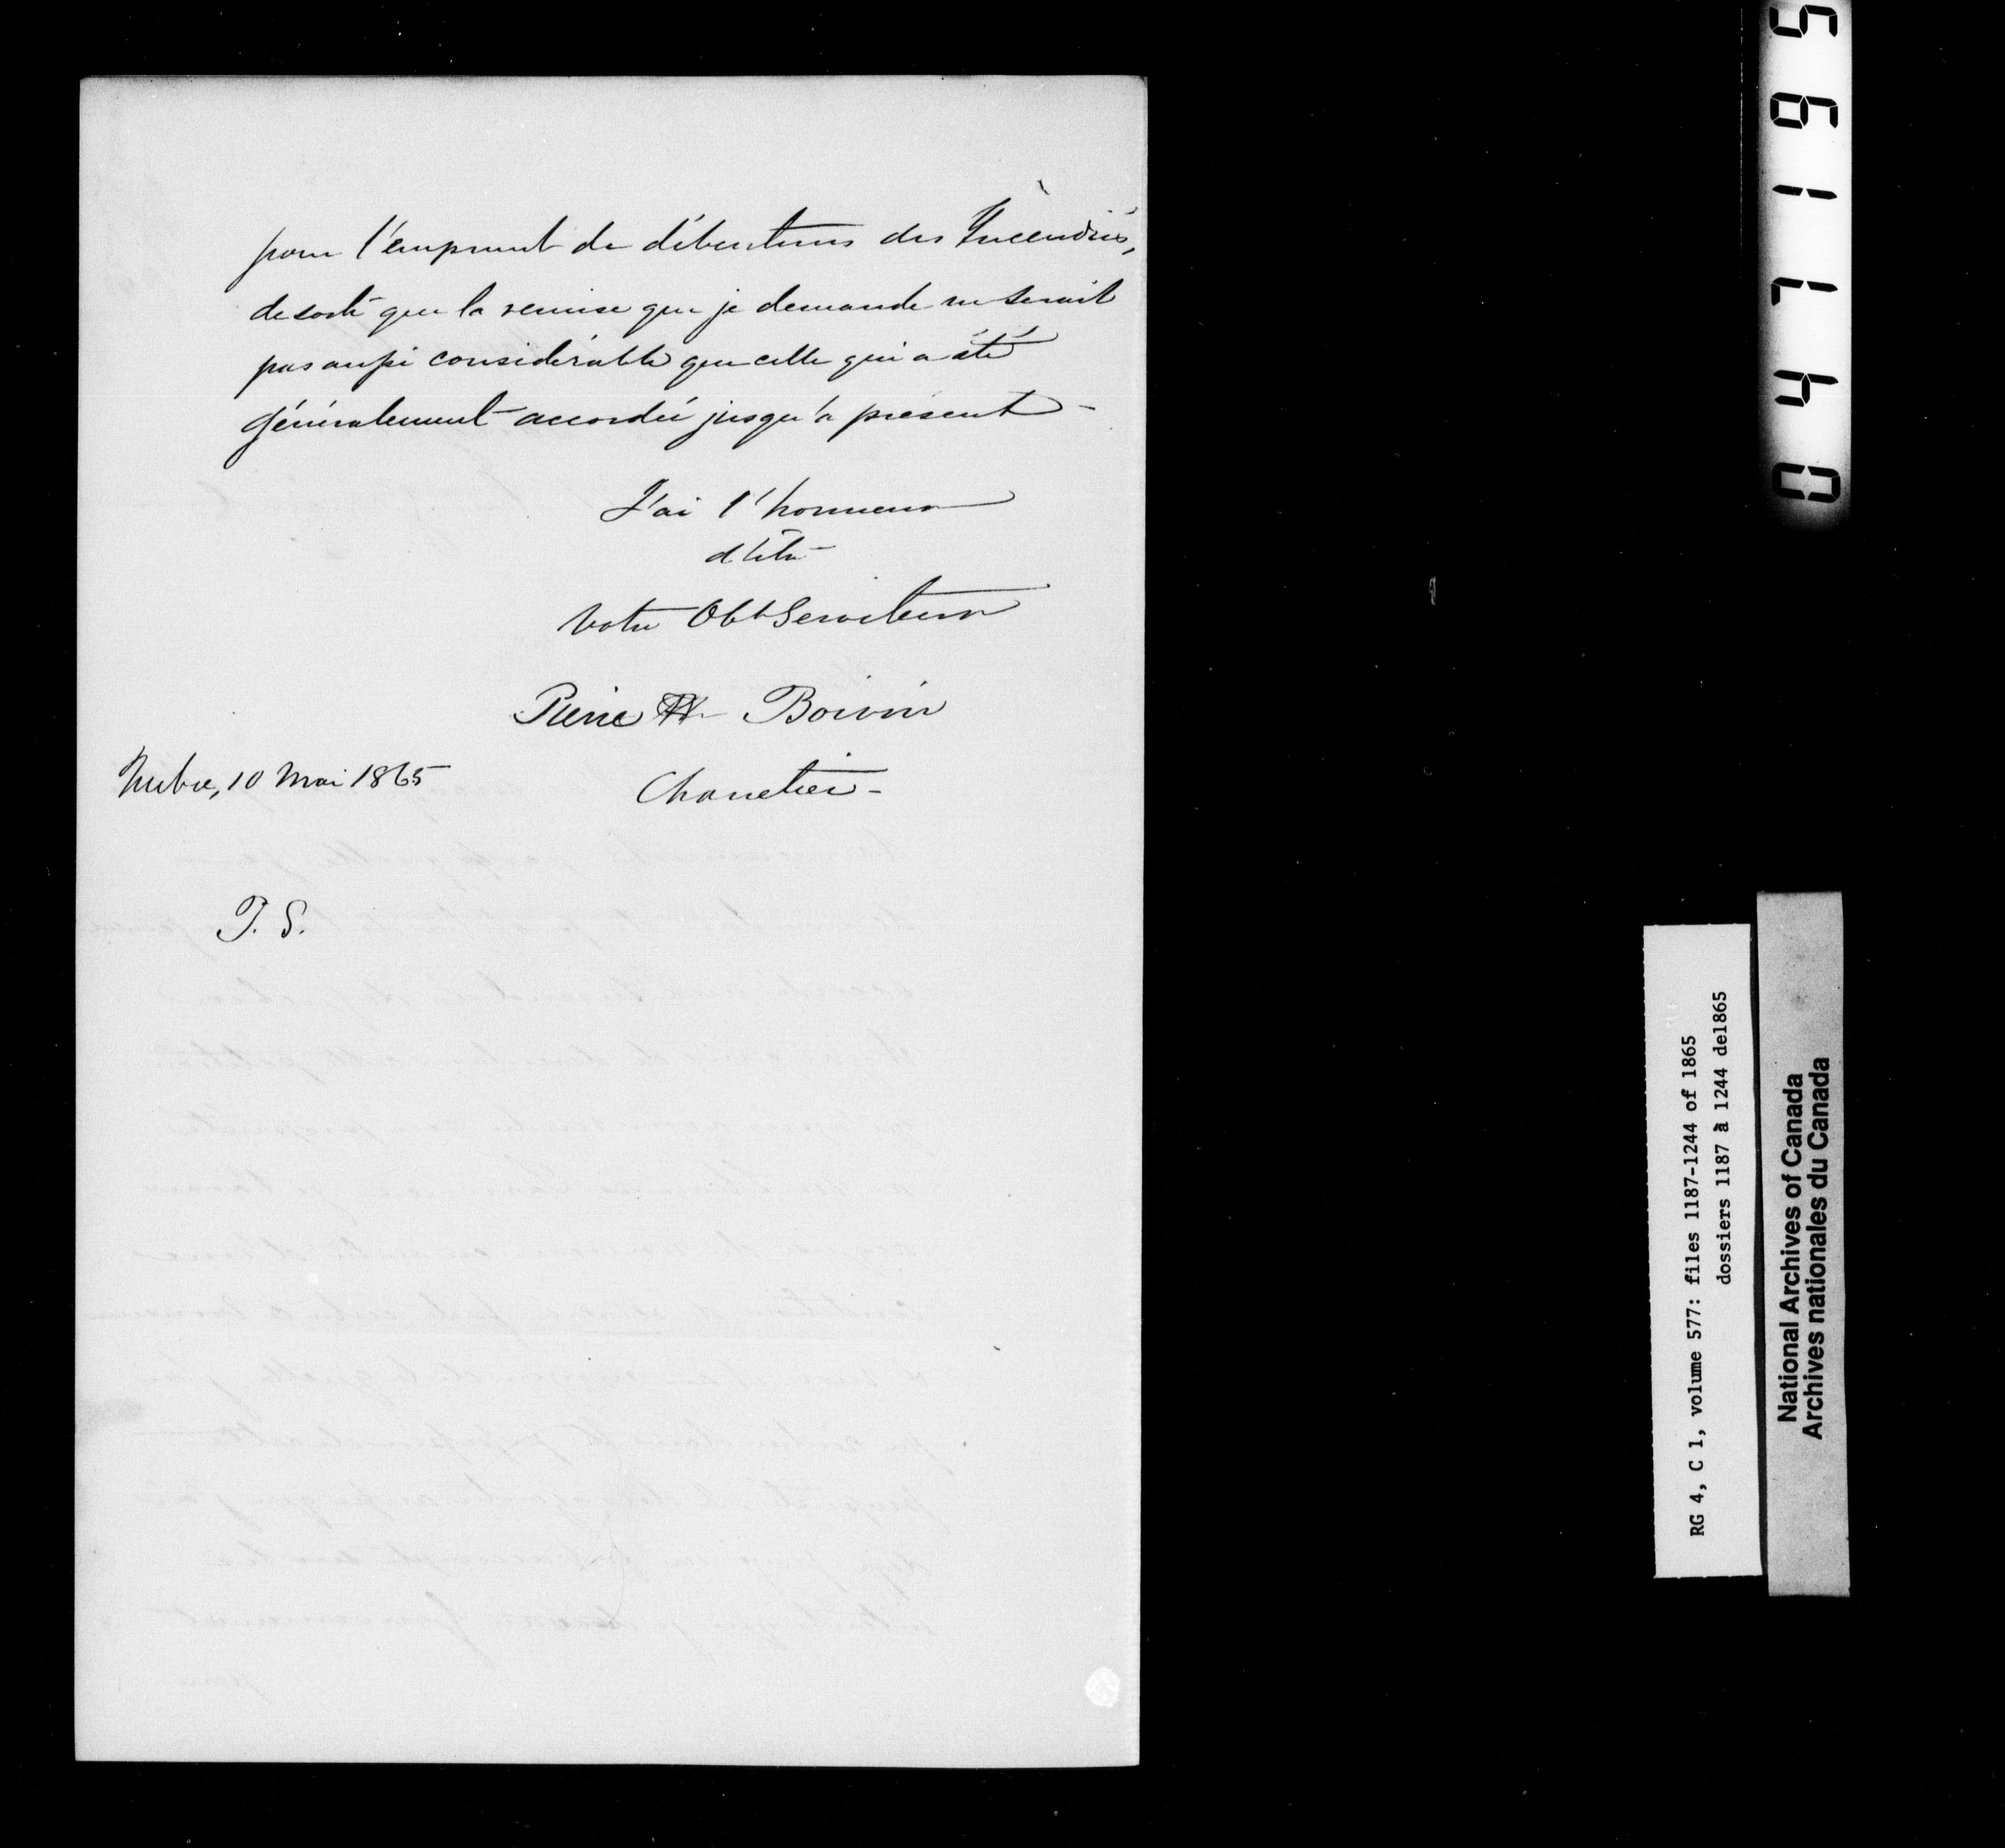 pour l'emprunt de débentures des Incendiés,
de sorte que la remise que je demande ne serait
pas aussi considérable que celle qui a été
généralement accordée jusqu'à présent -
J'ai l'honneur
d'être
Votre Obt Serviteur
Pierre Boivin
Charretier -
Québec, 10 Mai 1865
P. S.
047195
RG 4, C 1, volume 577: files 1187-1244 of 1865
dossiers 1187 à 1244 de1865
National Archives of Canada
Archives nationales du Canada